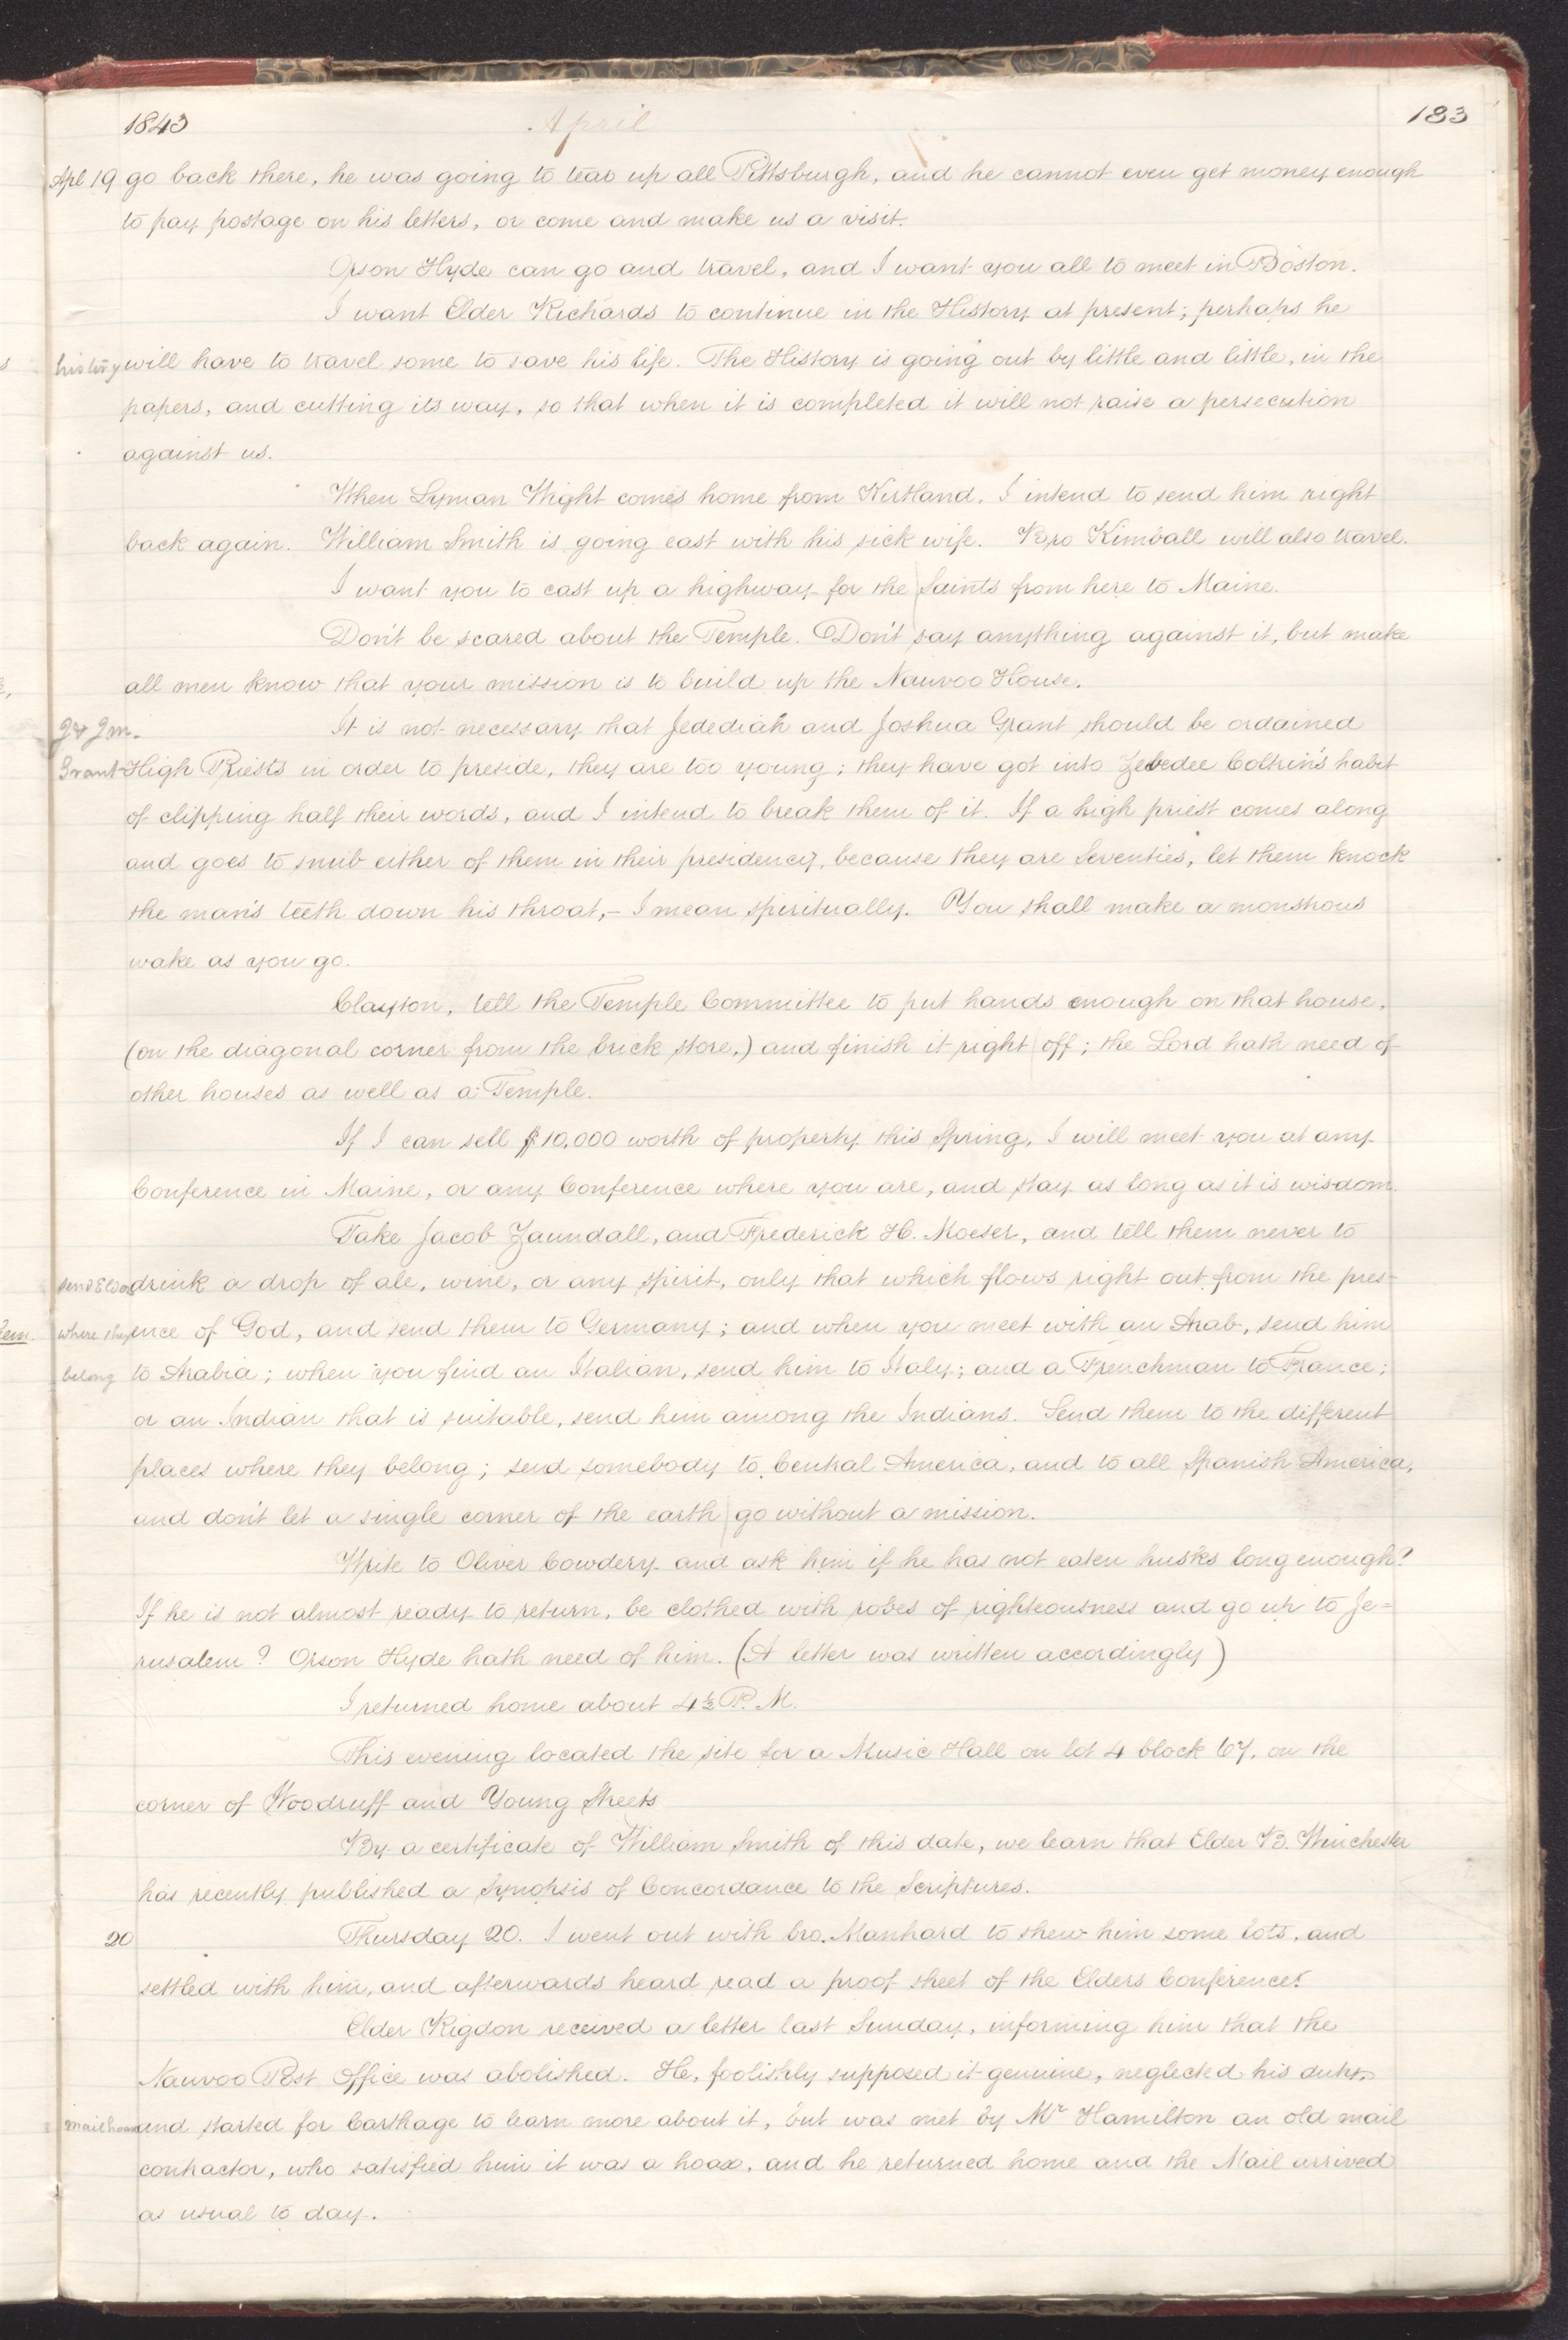 1843 April 183
Apl 19 go back there, he was going to tear up all Pittsburgh, and he cannot even get money enough
to pay postage on his letters, or come and make us a visit.
Orson Hyde can go and travel, and I want you all to meet in Boston.
I want Elder Richards to continue in the History at present; perhaps he
history will have to travel some to save his life. The History is going out by little and little, in the
papers, and cutting its way, so that when it is completed it will not raise a persecution
against us.
When Lyman Wight comes home from Kirtland, I intend to send him right
back again. William Smith is going east with his sick wife. Bro Kimball will also travel.
I want you to cast up a highway for the Saints from here to Maine.
Don't be scared about the Temple. Don't say anything against it, but make
all men know that your mission is to build up the Nauvoo House.
J & J m. It is not necessary that Jedediah and Joshua Grant should be ordained
Grant High Priests in order to preside, they are too young; they have got into Zebedee Coltrin's habit
of clipping half their words, and I intend to break them of it. If a high priest comes along
and goes to snub either of them in their presidency, because they are Seventies, let them knock
the man's teeth down his throat,— I mean spiritually. You shall make a monstrous
wake as you go.
Clayton, tell the Temple Committee to put hands enough on that house,
(on the diagonal corner from the brick store,) and finish it right off; the Lord hath need of
other houses as well as a Temple.
If I can sell $10,000 worth of property this Spring, I will meet you at any
Conference in Maine, or any Conference where you are, and stay as long as it is wisdom.
Take Jacob Zaundall, and Frederick H. Moeser, and tell them never to
send Elders drink a drop of ale, wine, or any spirit, only that which flows right out from the pres-
where they ence of God, and send them to Germany; and when you meet with an Arab, send him
belong to Arabia; when you find an Italian, send him to Italy; and a Frenchman to France;
or an Indian that is suitable, send him among the Indians. Send them to the different
places where they belong; send somebody to Central America, and to all Spanish America,
and don't let a single corner of the earth go without a mission.
Write to Oliver Cowdery and ask him if he has not eaten husks long enough?
If he is not almost ready to return, be clothed with robes of righteousness and go up to Je=
rusalem? Orson Hyde hath need of him. (A letter was written accordingly)
I returned home about 4½ P. M.
This evening located the site for a Music Hall on lot 4 block 67, on the
corner of Woodruff and Young Streets
By a certificate of William Smith of this date, we learn that Elder B. Winchester
has recently published a Synopsis of Concordance to the Scriptures.
20 Thursday 20. I went out with bro. Manhard to shew him some lots, and
settled with him, and afterwards heard read a proof sheet of the Elders Conference.
Elder Rigdon received a letter last Sunday, informing him that the
Nauvoo Post Office was abolished. He, foolishly supposed it genuine, neglected his duty,
mail hoax and started for Carthage to learn more about it, but was met by Mr Hamilton an old mail
contractor, who satisfied him it was a hoax, and he returned home and the Mail arrived
as usual to day.